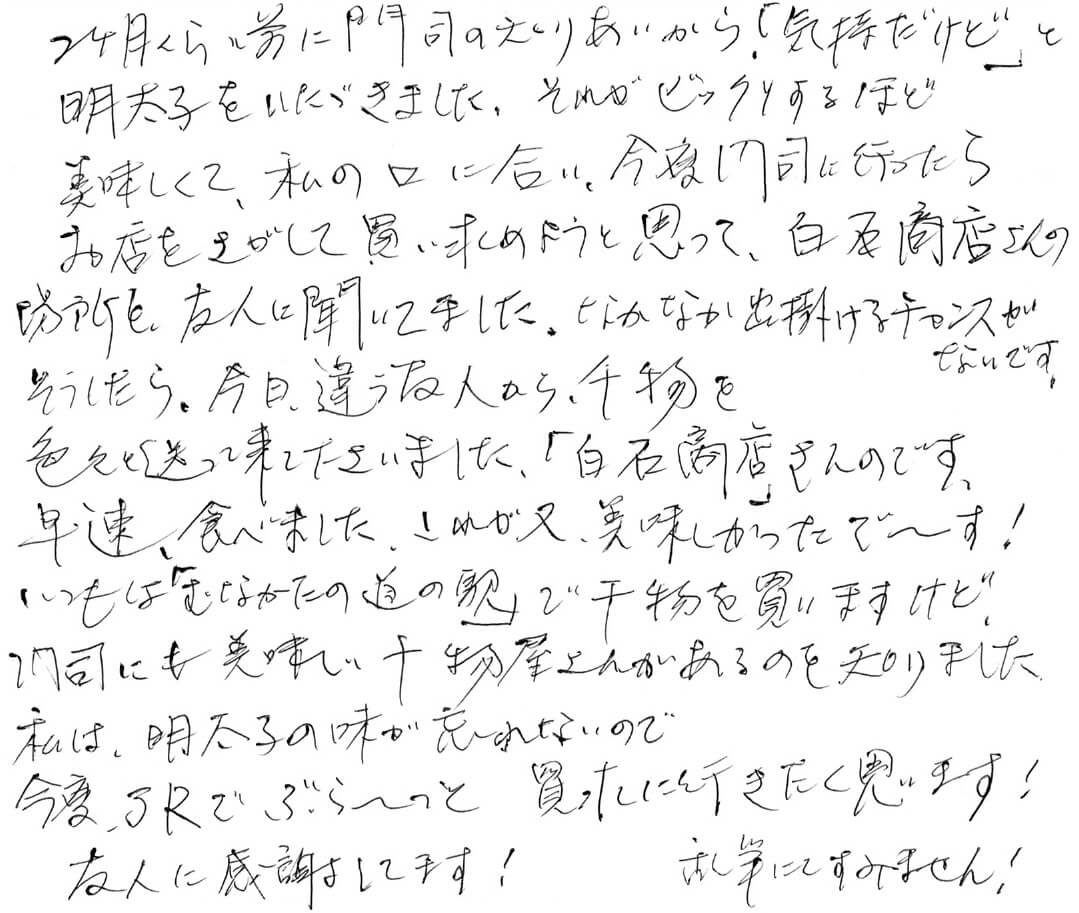 2ケ月くらい前に門司の知りあいから、「気持だけど」と
明太子をいただきました。それがビックリするほど
美味しくて、私の口に合い、今度門司に行ったら
お店をさがして買い求めようと思って、白石商店さんの
場所を、友人に聞いてました。なかなか出掛けるチャンスが
ないです。
そうしたら、今日、違う友人から、干物を
色々と送って来て下さいました、「白石商店」さんのです、
早速、食べました、これが又、美味しかったで〜す!
いつもは「むなかたの道の駅」で干物を買いますけど、
門司にも美味しい干物屋さんがあるのを知りました
私は、明太子の味が忘れないので
今度、JRでぶら〜っと 買いに行きたく思います!
友人に感謝してます! 乱筆にてすみません!